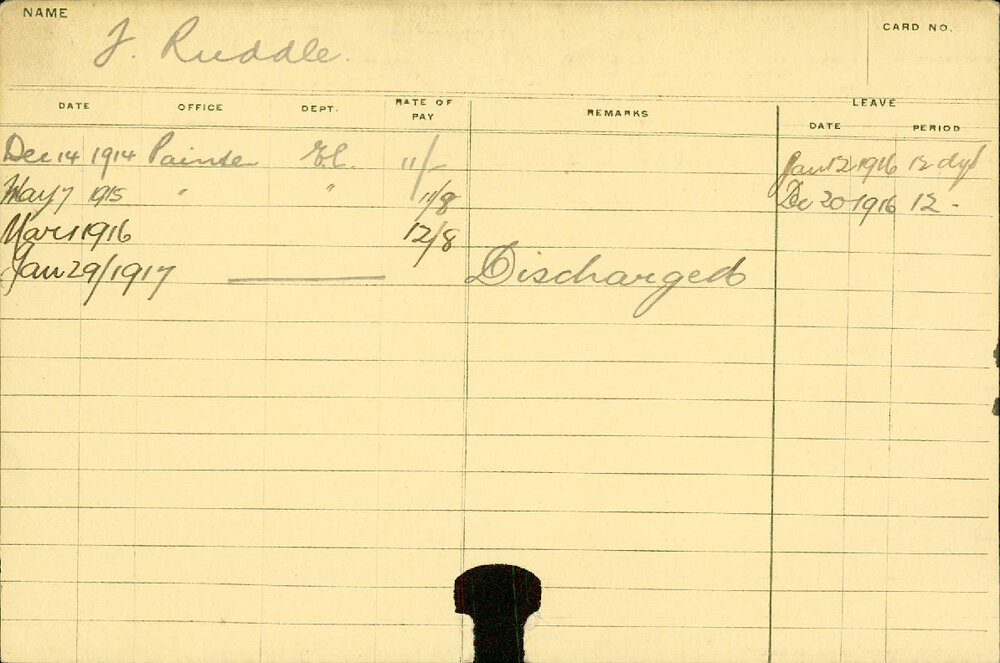 NAME
J. Ruddle.
CARD NO.
DATE OFFICE DEPT. RATE OF PAY REMARKS LEAVE
DATE PERIOD
Dec 14 1914 Painter El. 11/- Jan 12 1916 12 dys
May 7 1915 " " 11/8 De 20 1916 12 -
Mar 1 1916 12/8
Jan 29/1917 Discharged